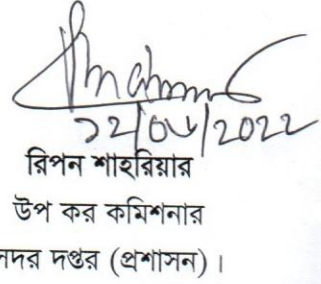 ১২/০৬/২০২২
রিপন শাহরিয়ার
উপ কর কমিশনার
সদর দপ্তর (প্রশাসন) ।